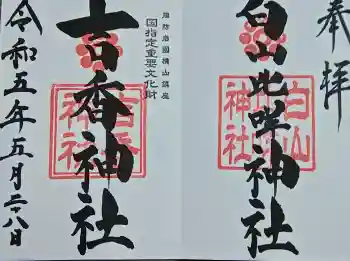 奉拝
白山比咩神社
白山神社
周防岩国横山鎮座
国指定重要文化財
吉香神社
吉香神社
令和五年五月二十八日